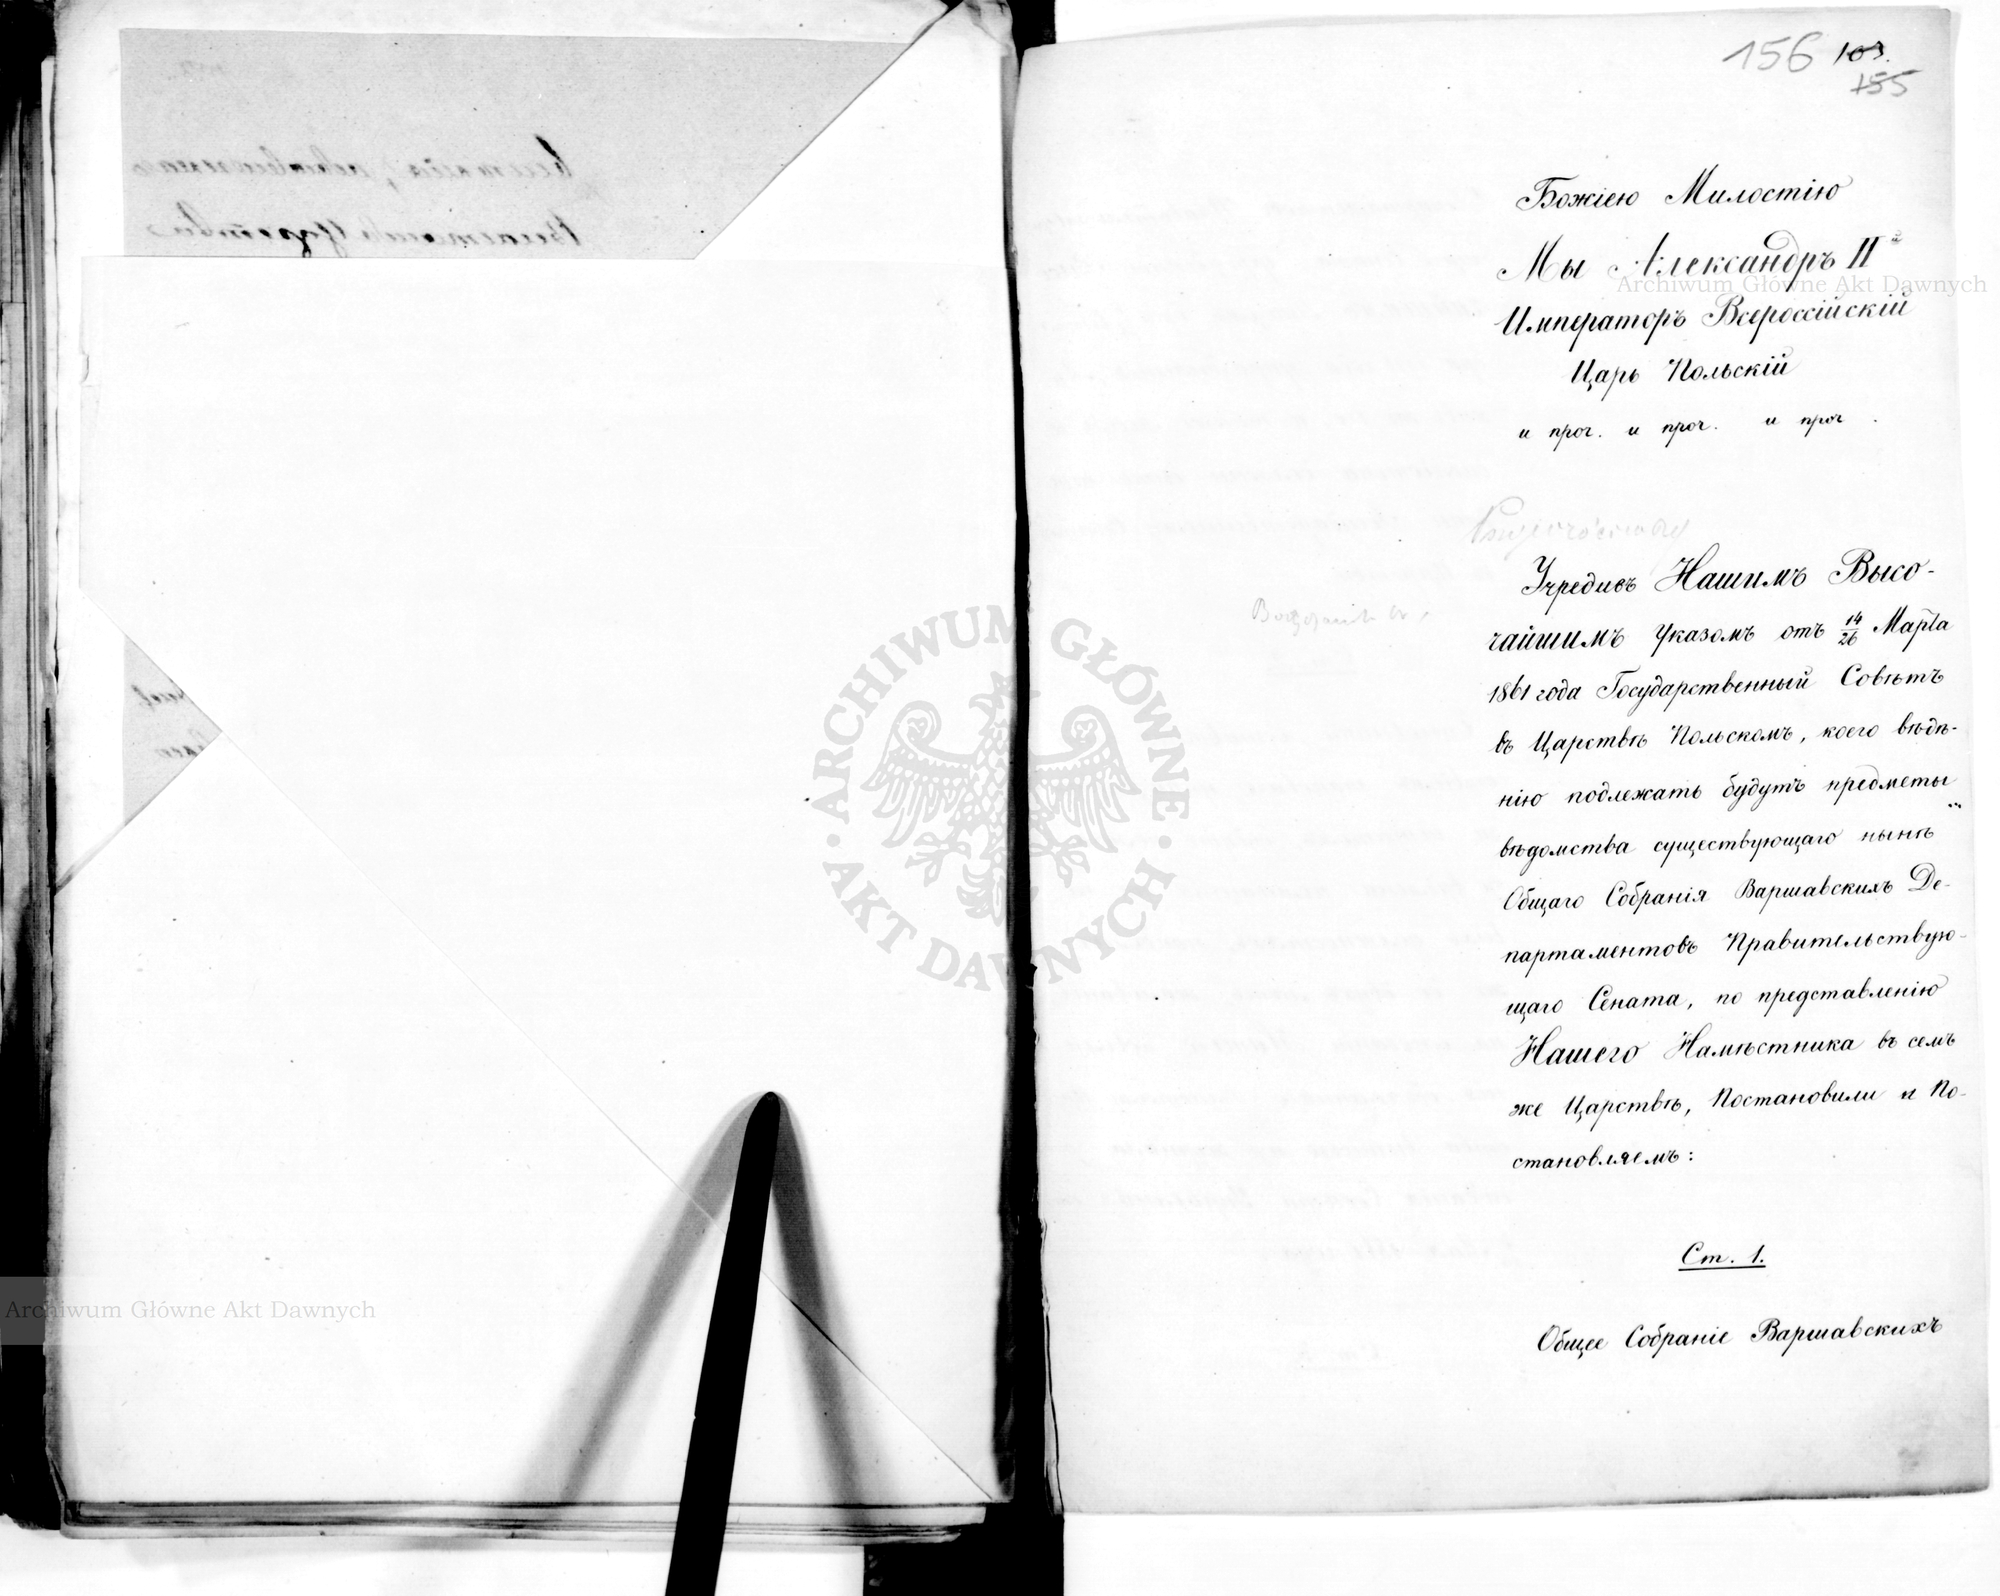 156 103.
155
Божіею Милостію
Мы Александръ II й
Императоръ Всероссійскій
Царь Польскій
и проч. и проч. и проч.
Учредивъ Нашимъ Высо-
чайшимъ Указомъ отъ 14/26 Марта
1861 года Государственный Совѣтъ
въ Царствѣ Польскомъ, коего вѣдѣ-
нію подлежать будутъ предметы
вѣдомства существующаго нынѣ
Общаго Собранія Варшавскихъ Де-
партаментовъ Правительствую-
щаго Сената, по представленію
Нашего Намѣстника въ семъ
же Царствѣ, Постановили и По-
становляемъ:
Ст. 1.
Общее Собраніе Варшавскихъ
Archiwum Główne Akt Dawnych
Archiwum Główne Akt Dawnych
ARCHIWUM GŁÓWNE
AKT DAWNYCH